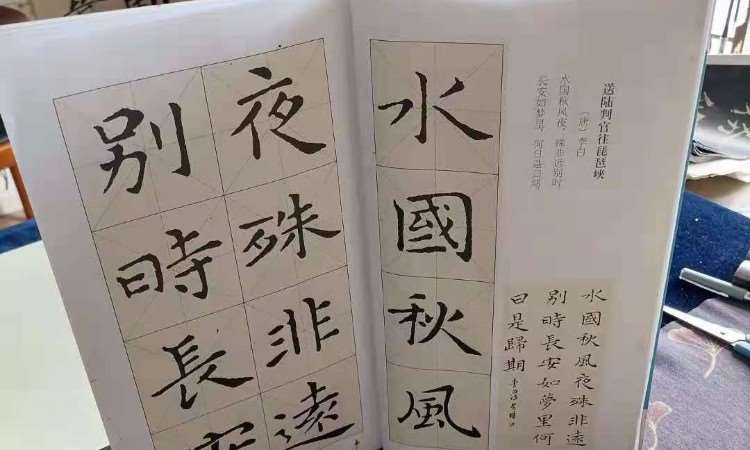 送陆判官往琵琶峡
（唐）李白
水国秋风夜，殊非远别时。
长安如梦里，何日是归期。
水國秋風夜殊非遠
別時長安如夢里何
日是歸期
水國秋風
夜殊非遠
别時長安